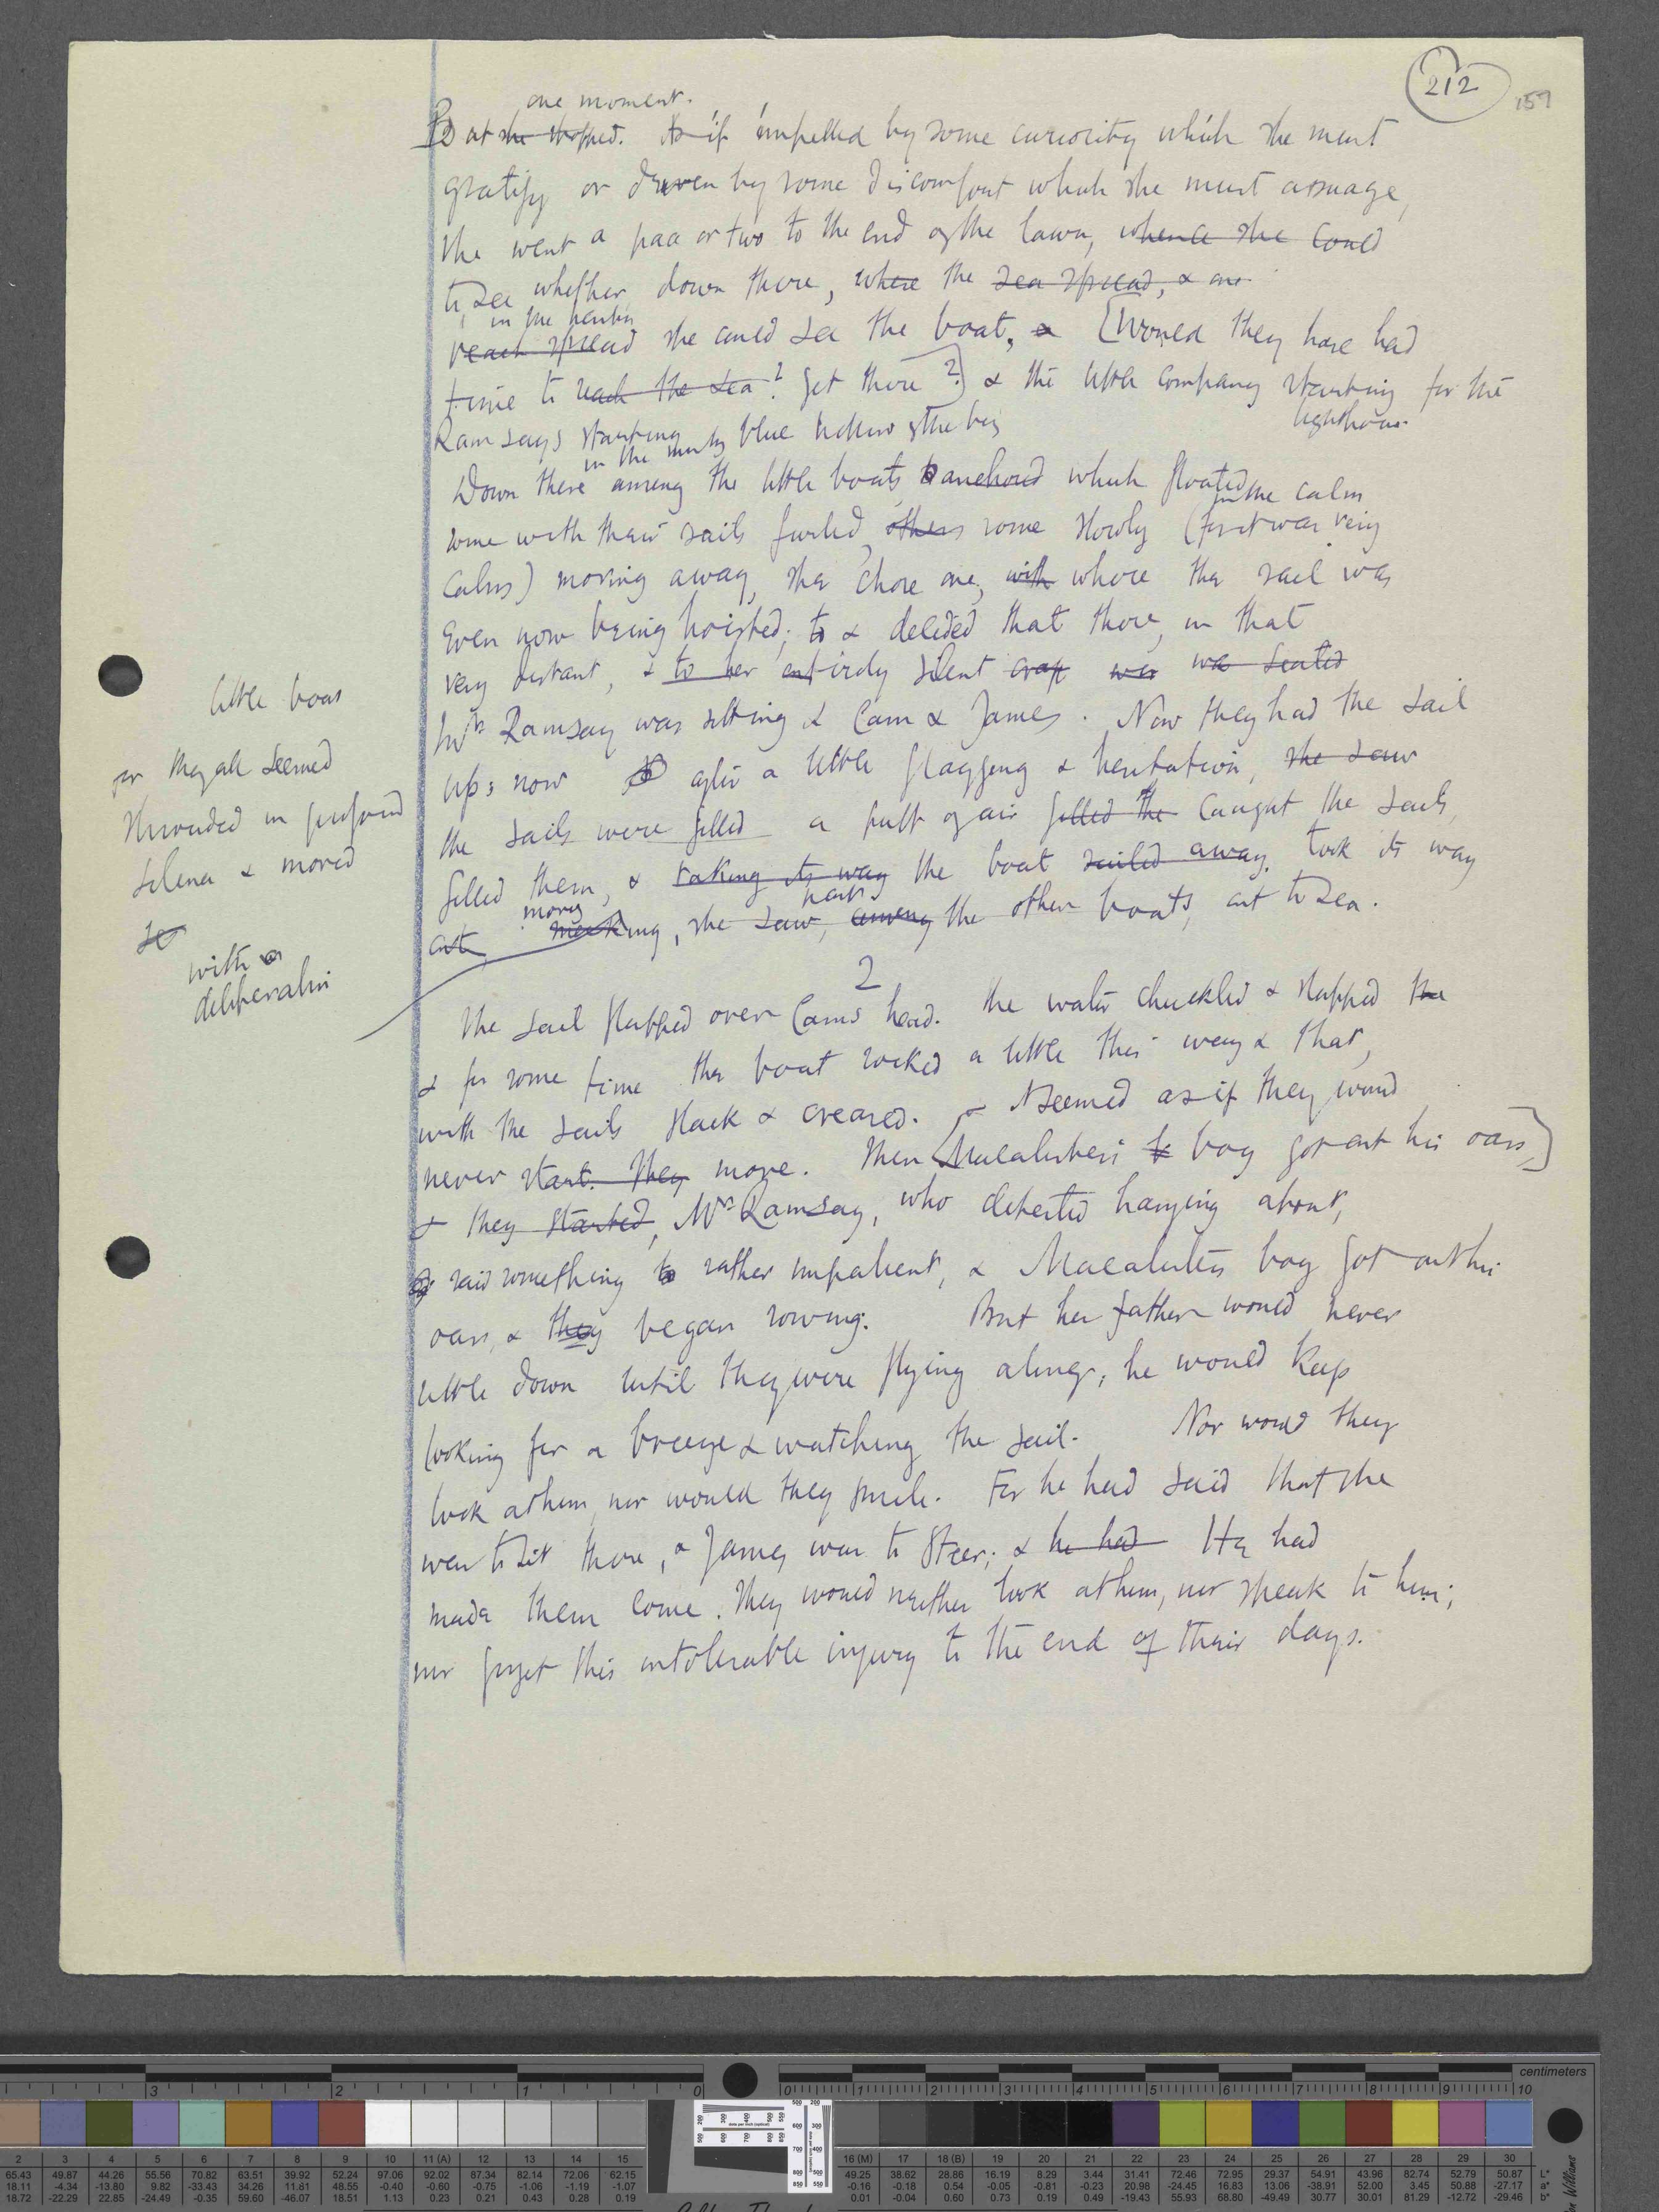 212
159
one moment.
at she stopped. As if impelled by some curiosity which she must
gratify or driven by some discomfort which she must assuage,
she went a pace or two to the end of the lawn, whence she could
to see whether, down there, where the sea spread, &
she could see the boat, & [Would they have had
time to reach the sea? get there?] & the little company starting for the
lighthouse.
Ramsays starting blue hollow of the bay
in the
Down there among the little boats anchored which floated
some with their sails furled, others some slowly (for it was very
calm) moving away, she chose one, with whose the sail was
even now being hoisted; to & decided that there, in that
very distant, & to her entirely silent craft was was seated
Mr Ramsay was sitting & Cam & James. Now they had the sail
up; now after a little flagging & hesitation, she saw
the sails were filled a puff of air filled the caught the sails,
filled them, & taking its way the boat sailed away. took its way
out, she saw, among the other boats, out to sea.
little boats
for they all seemed
shrouded in profound
silence & moved
so
with
deliberation
2
The sail flapped over Cams head. The water chuckled & slapped the
& for some time the boat rocked a little this way & that,
with the sails slack & creased. It seemed as if they would
never start. They move. Then [Macalisters boy got out his oars,]
& they started, Mr Ramsay, who detested hanging about,
said something to rather impatient, & Macalisters boy got out his
oars, & they began rowing. But her father would never
settle down until they were flying along; he would keep
looking for a breeze & watching the sail. Nor would they
look at him, nor would they smile. For he had said that she
was to sit there, & James was to steer; & he had He had
made them come. They would neither look at him, nor speak to him;
nor forget this intolerable injury to the end of their days.
centimeters